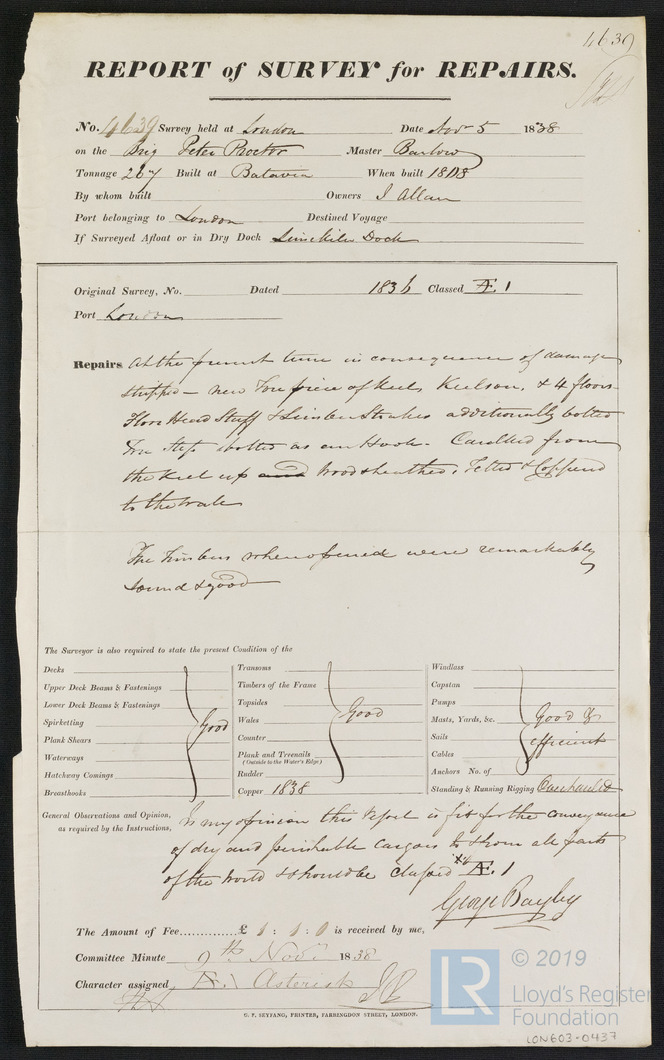 4639
REPORT of SURVEY for REPAIRS.
No. 4639 Survey held at London Date Novr 5 1838
on the Brig Peter Proctor Master Barlow
Tonnage 267 Built at Batavia When built 1808
By whom built Owners J Allan
Port belonging to London Destined Voyage
If Surveyed Afloat or in Dry Dock Limekiln Dock
Original Survey, No. Dated 1836 Classed Æ 1
Port London
Repairs. At the present time in consequence of damage
stripped - new Fore piece of Keel, Keelson, & 4 floors
Floor Head Stuff & Limber Strakes additionally bolted
Fore Step bolted as an Hook - Caulked from
the Keel up and Wood sheathed, Felted & Coppered
to the wales
The Timbers when opened were remarkably
sound & good
The Surveyor is also required to state the present Condition of the
Decks
Upper Deck Beams & Fastenings
Lower Deck Beams & Fastenings
Spirketting
Plank Shears
Waterways
Hatchway Comings
Breasthooks
Good
Transoms
Timbers of the Frame
Topsides
Wales
Counter
Plank and Treenails
(Outside to the Water's Edge)
Rudder
Good
Copper 1838
Windlass
Capstan
Pumps
Masts, Yards, &c.
Sails
Cables
Anchors No. of
Good & efficient
Standing & Running Rigging Overhauled
General Observations and Opinion,
as required by the Instructions,
In my opinion this Vessel is fit for the conveyance
of dry and perishable cargoes to & from all parts
of the World & should be Classed Æ 1
George Bayley
The Amount of Fee............. £ 1 : 1 : 0 is received by me,
Committee Minute 9th Novr 1838
Character assigned Æ. 1 Asterisk
G. F. SEYFANG, PRINTER, FARRINGDON STREET, LONDON.
LR
© 2019
Lloyd's Register
Foundation
LON603-0437